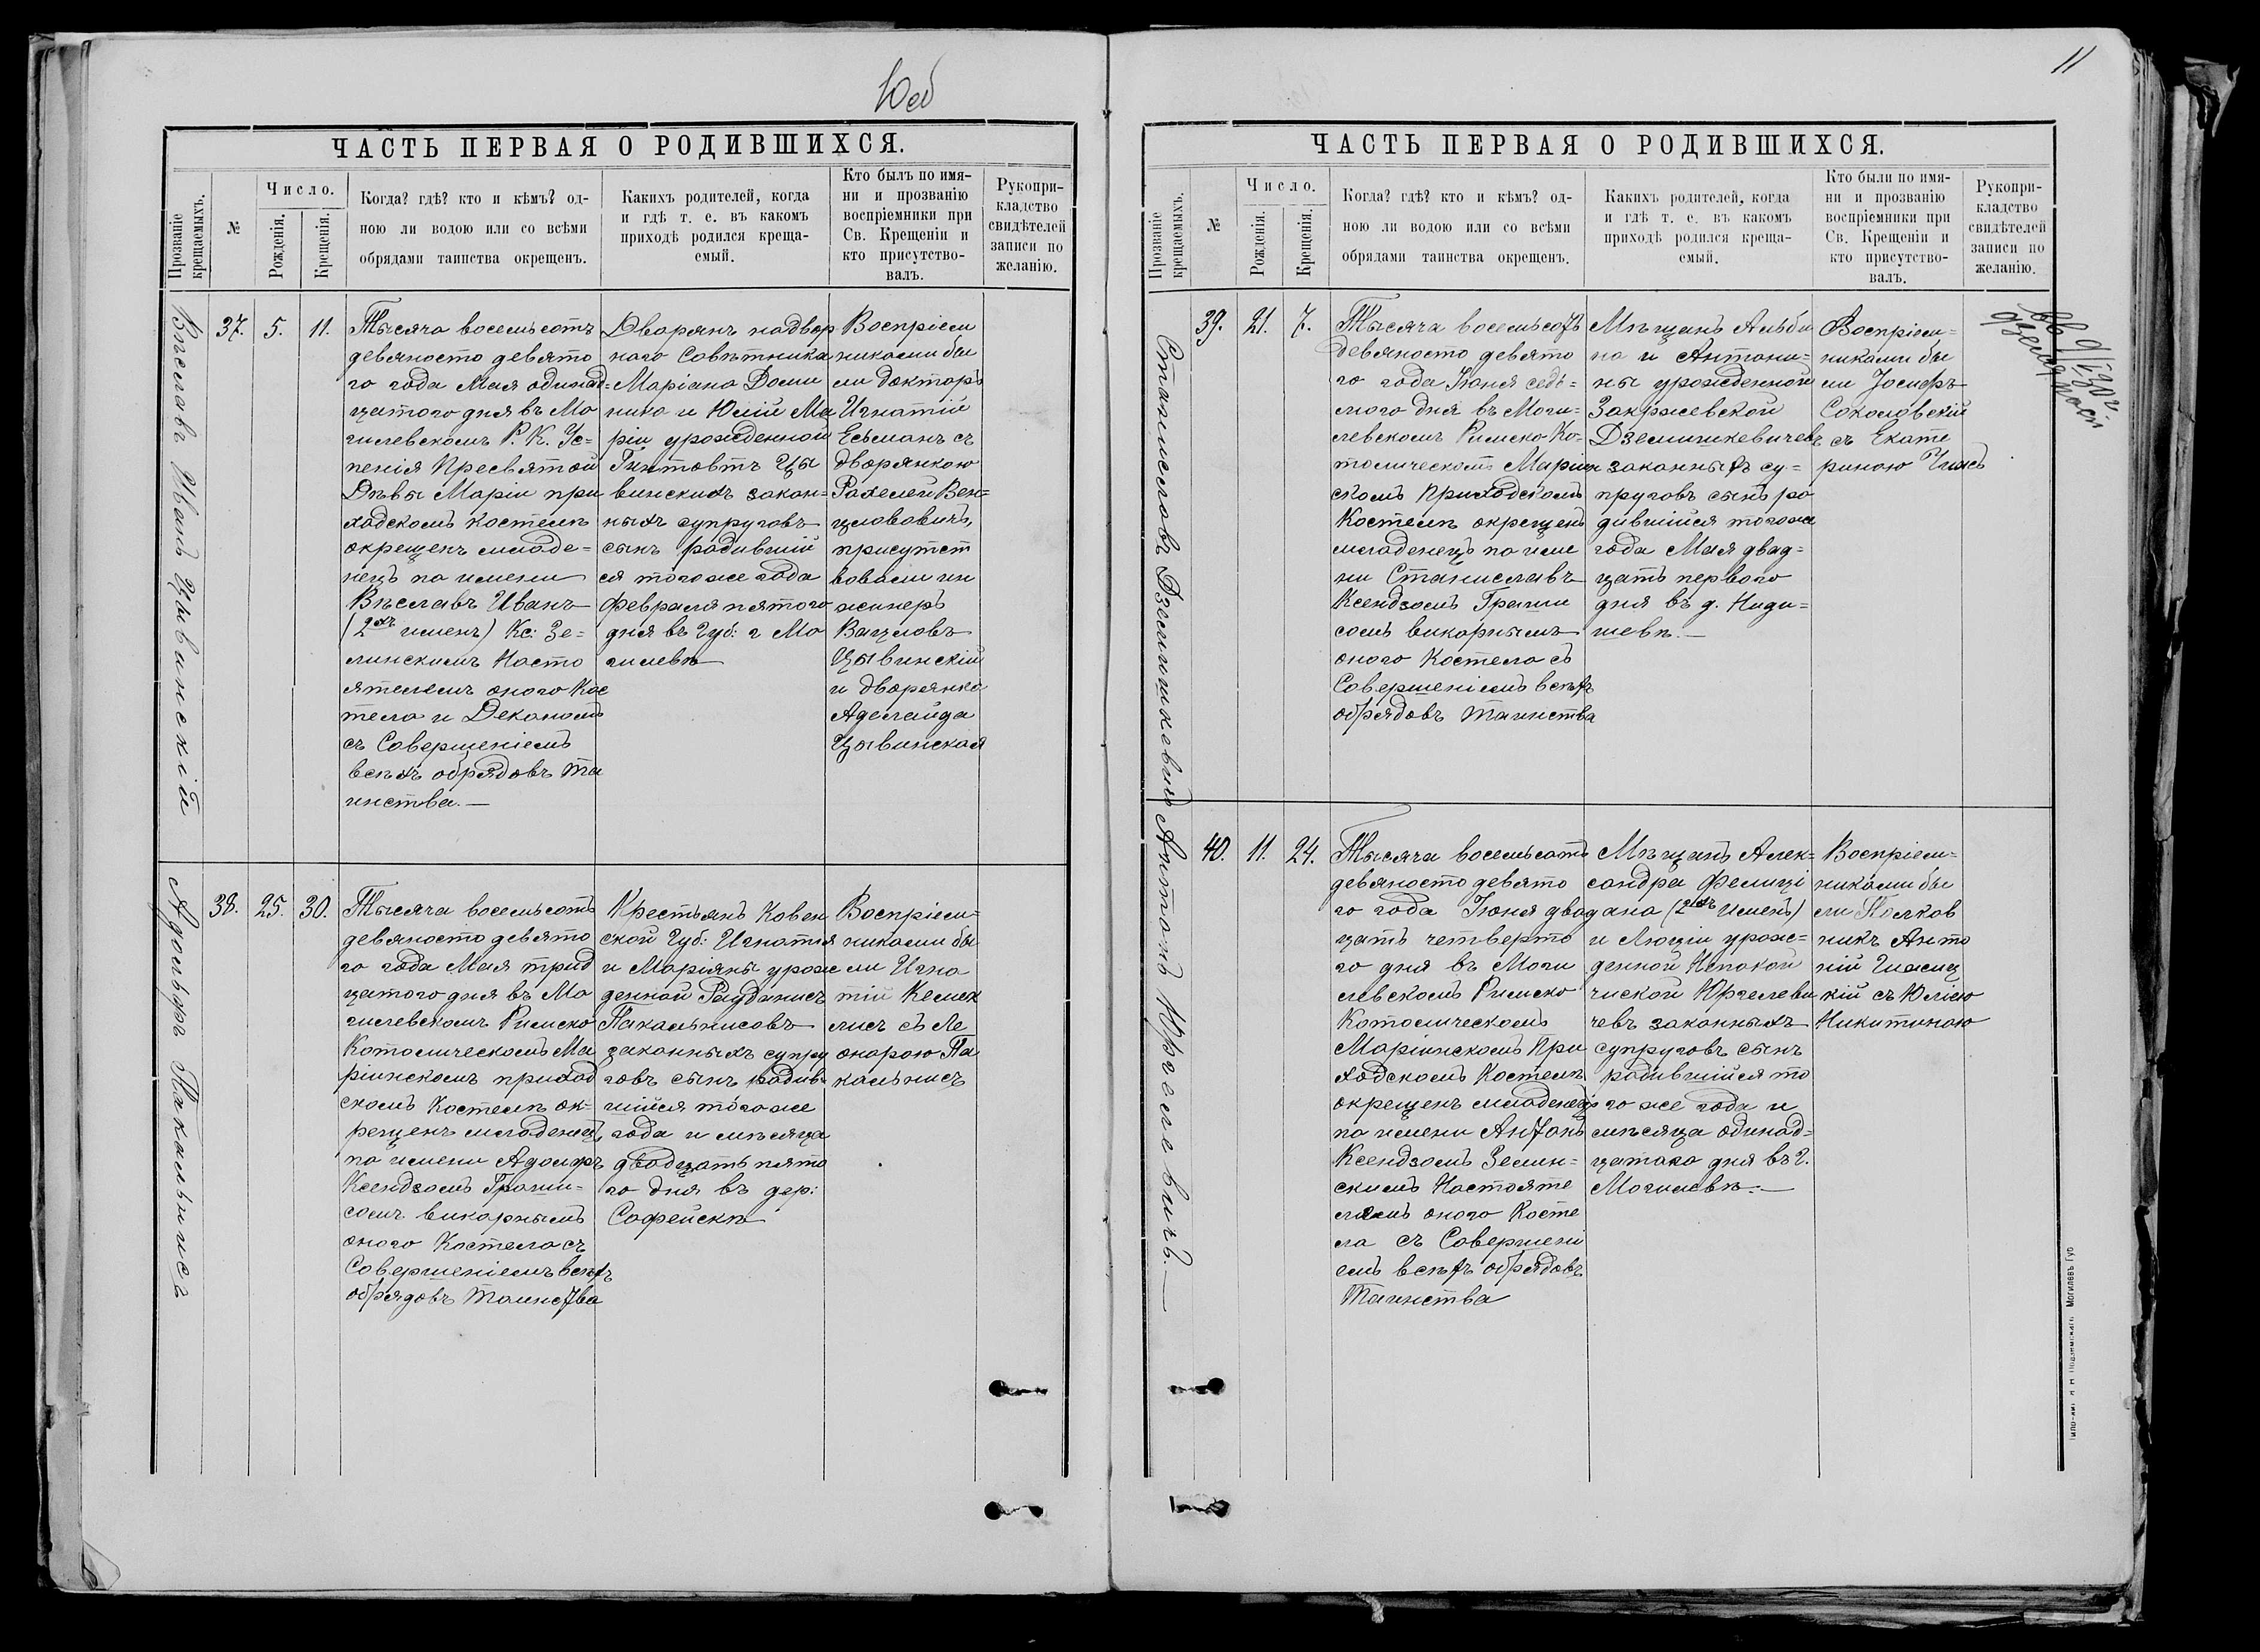 10об
ЧАСТЬ ПЕРВАЯ О РОДИВШИХСЯ.
Прозваніе крещаемыхъ.
№
Число.
Рожденія.
Крещенія.
Когда? гдѣ? кто и кѣмъ? од-
ною ли водою или со всѣми
обрядами таинства окрещенъ.
Какихъ родителей, когда
и гдѣ т. е. въ какомъ
приходѣ родился креща-
емый.
Кто былъ по имя-
ни и прозванію
воспріемники при
Св. Крещеніи и
кто присутство-
валъ.
Рукопри-
кладство
свидѣтелей
записи по
желанію.
Вѣславъ Иванъ Цывинскій
37.
5.
11.
Тысяча восемьсотъ
девяносто девято
го года Мая одинад=
цатого дня въ Мо
гилевскомъ Р. К. Ус=
пенія Пресвятой
Дѣвы Маріи при
ходскомъ костелѣ
окрещенъ младе=
нецъ по имени
Вѣславъ Иванъ
(2хъ именъ) Кс: Зе=
линскимъ Насто
ятелемъ оного Кос
тела и Деканомъ
съ Совершеніемъ
всѣхъ обрядовъ та
инства.—
Дворянъ надвор
наго Совѣтника
Маріана Доми
ника и Юліи Ма
ріи урожденной
Гинтовтъ Цы
винскихъ закон=
ныхъ супруговъ
сынъ родившій
ся того же года
февраля пятого
дня въ Губ: г Мо
гилевѣ
Воспріем
никами бы
ли докторъ
Игнатій
Есьманъ съ
дворянкою
Рахелей Вен=
цлововичъ,
присутст
вовали ин
женеръ
Вацловъ
Цывинскій
и дворянка
Аделайда
Цывинская
Адольфъ Пакальнисъ
38.
25.
30.
Тысяча восемьсотъ
девяносто девято
го года Мая трид
цатого дня въ Мо
гилевскомъ Римско
Католическомъ Ма
ріинскомъ приход
скомъ Костелѣ ок=
рещенъ младенецъ
по имени Адольфъ
Ксендзомъ Громи=
сомъ викарнымъ
оного Костела съ
Совершеніемъ всѣхъ
обрядовъ таинства
Крестьянъ Ковен
ской Губ: Игнатія
и Маріяны урож
денной Раудзнисъ
Пакальнисовъ
законныхъ супру
говъ сынъ родив=
шійся того же
года и мѣсяца
двадцать пято
го дня въ дер:
Софейскѣ
Воспріем=
никами бы
ли Игна
тій Кемех
лисъ съ Ле
онорою Па
кальнисъ
11
ЧАСТЬ ПЕРВАЯ О РОДИВШИХСЯ.
Прозваніе крещаемыхъ.
№
Число.
Рожденія.
Крещенія.
Когда? гдѣ? кто и кѣмъ? од-
ною ли водою или со всѣми
обрядами таинства окрещенъ.
Какихъ родителей, когда
и гдѣ т. е. въ какомъ
приходѣ родился креща-
емый.
Кто были по имя-
ни и прозванію
воспріемники при
Св. Крещеніи и
кто присутство-
валъ.
Рукопри-
кладство
свидѣтелей
записи по
желанію.
Станиславъ Дземишкевичъ
39.
21.
7.
Тысяча восемьсотъ
девяносто девято
го года Іюня седь=
мого дня въ Моги=
левскомъ Римско-Ка=
толическомъ Маріин
скомъ Приходскомъ
Костелѣ окрещенъ
младенецъ по име
ни Станиславъ
Ксендзомъ Громи
сомъ викарнымъ
оного Костела съ
Совершеніемъ всѣхъ
обрядовъ таинства
Мѣщанъ Альби
на и Антони=
ны урожденной
Закржевской
Дземишкевичевъ
законныхъ су=
пруговъ сынъ ро
дившійся того же
года Мая двад=
цать первого
дня въ д. Ниди=
шевѣ.—
Воспріем=
никами бы
ли Іосифъ
Соколовскій
съ Екате
риною Чижъ
Антонъ Юргелевичъ.—
40.
11.
24.
Тысяча восемьсотъ
девяносто девято
го года Іюня двад
цать четверто
го дня въ Моги
левскомъ Римско
Католическомъ
Маріинскомъ При
ходскомъ Костелѣ
окрещенъ младенецъ
по имени Антонъ
Ксендзомъ Зелин=
скимъ Настояте
лемъ оного Косте
ла съ Совершені
емъ всѣхъ обрядовъ
Таинства
Мѣщанъ Алек=
сандра Фелиці
ана (2хъ именъ)
и Люціи урож=
денной Непокой
чиской Юргелеви
чевъ законныхъ
супруговъ сынъ
родившійся то
го же года и
мѣсяца одинад=
цатаго дня въ г.
Могилевѣ.—
Воспріем=
никами бы
ли Полков
никъ Анто
ній
съ Юліею
Никитиною